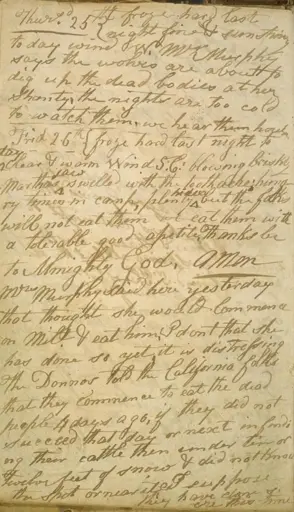 Thursd. 25th froze hard last
night fine & sunshiny
to day wind W. Mrs Murphy
says the wolves are about to
dig up the dead bodies at her
shanty, the nights are too cold
to watch them, we hear them howl
Frid 26th froze hard last night to
day clear & warm Wind S.E. blowing briskly
Marthas jaw swelled with the toothache; hung
ry times in camp, plenty hides but the folks
will not eat them we eat them with
a tolerable good apetite. Thanks be
to Almighty God. Amen
Mrs Murphy said here yesterday
that thought she would commence
on Milt. & eat him. I dont that she
has done so yet, it is distressing
The Donnos told the California folks
that they commence to eat the dead
people 4 days ago, if they did not
succeed that day or next in findi
ng their cattle then under ten or
twelve feet of snow & did not know
the spot or near it, I suppose
they have done so
ere this time